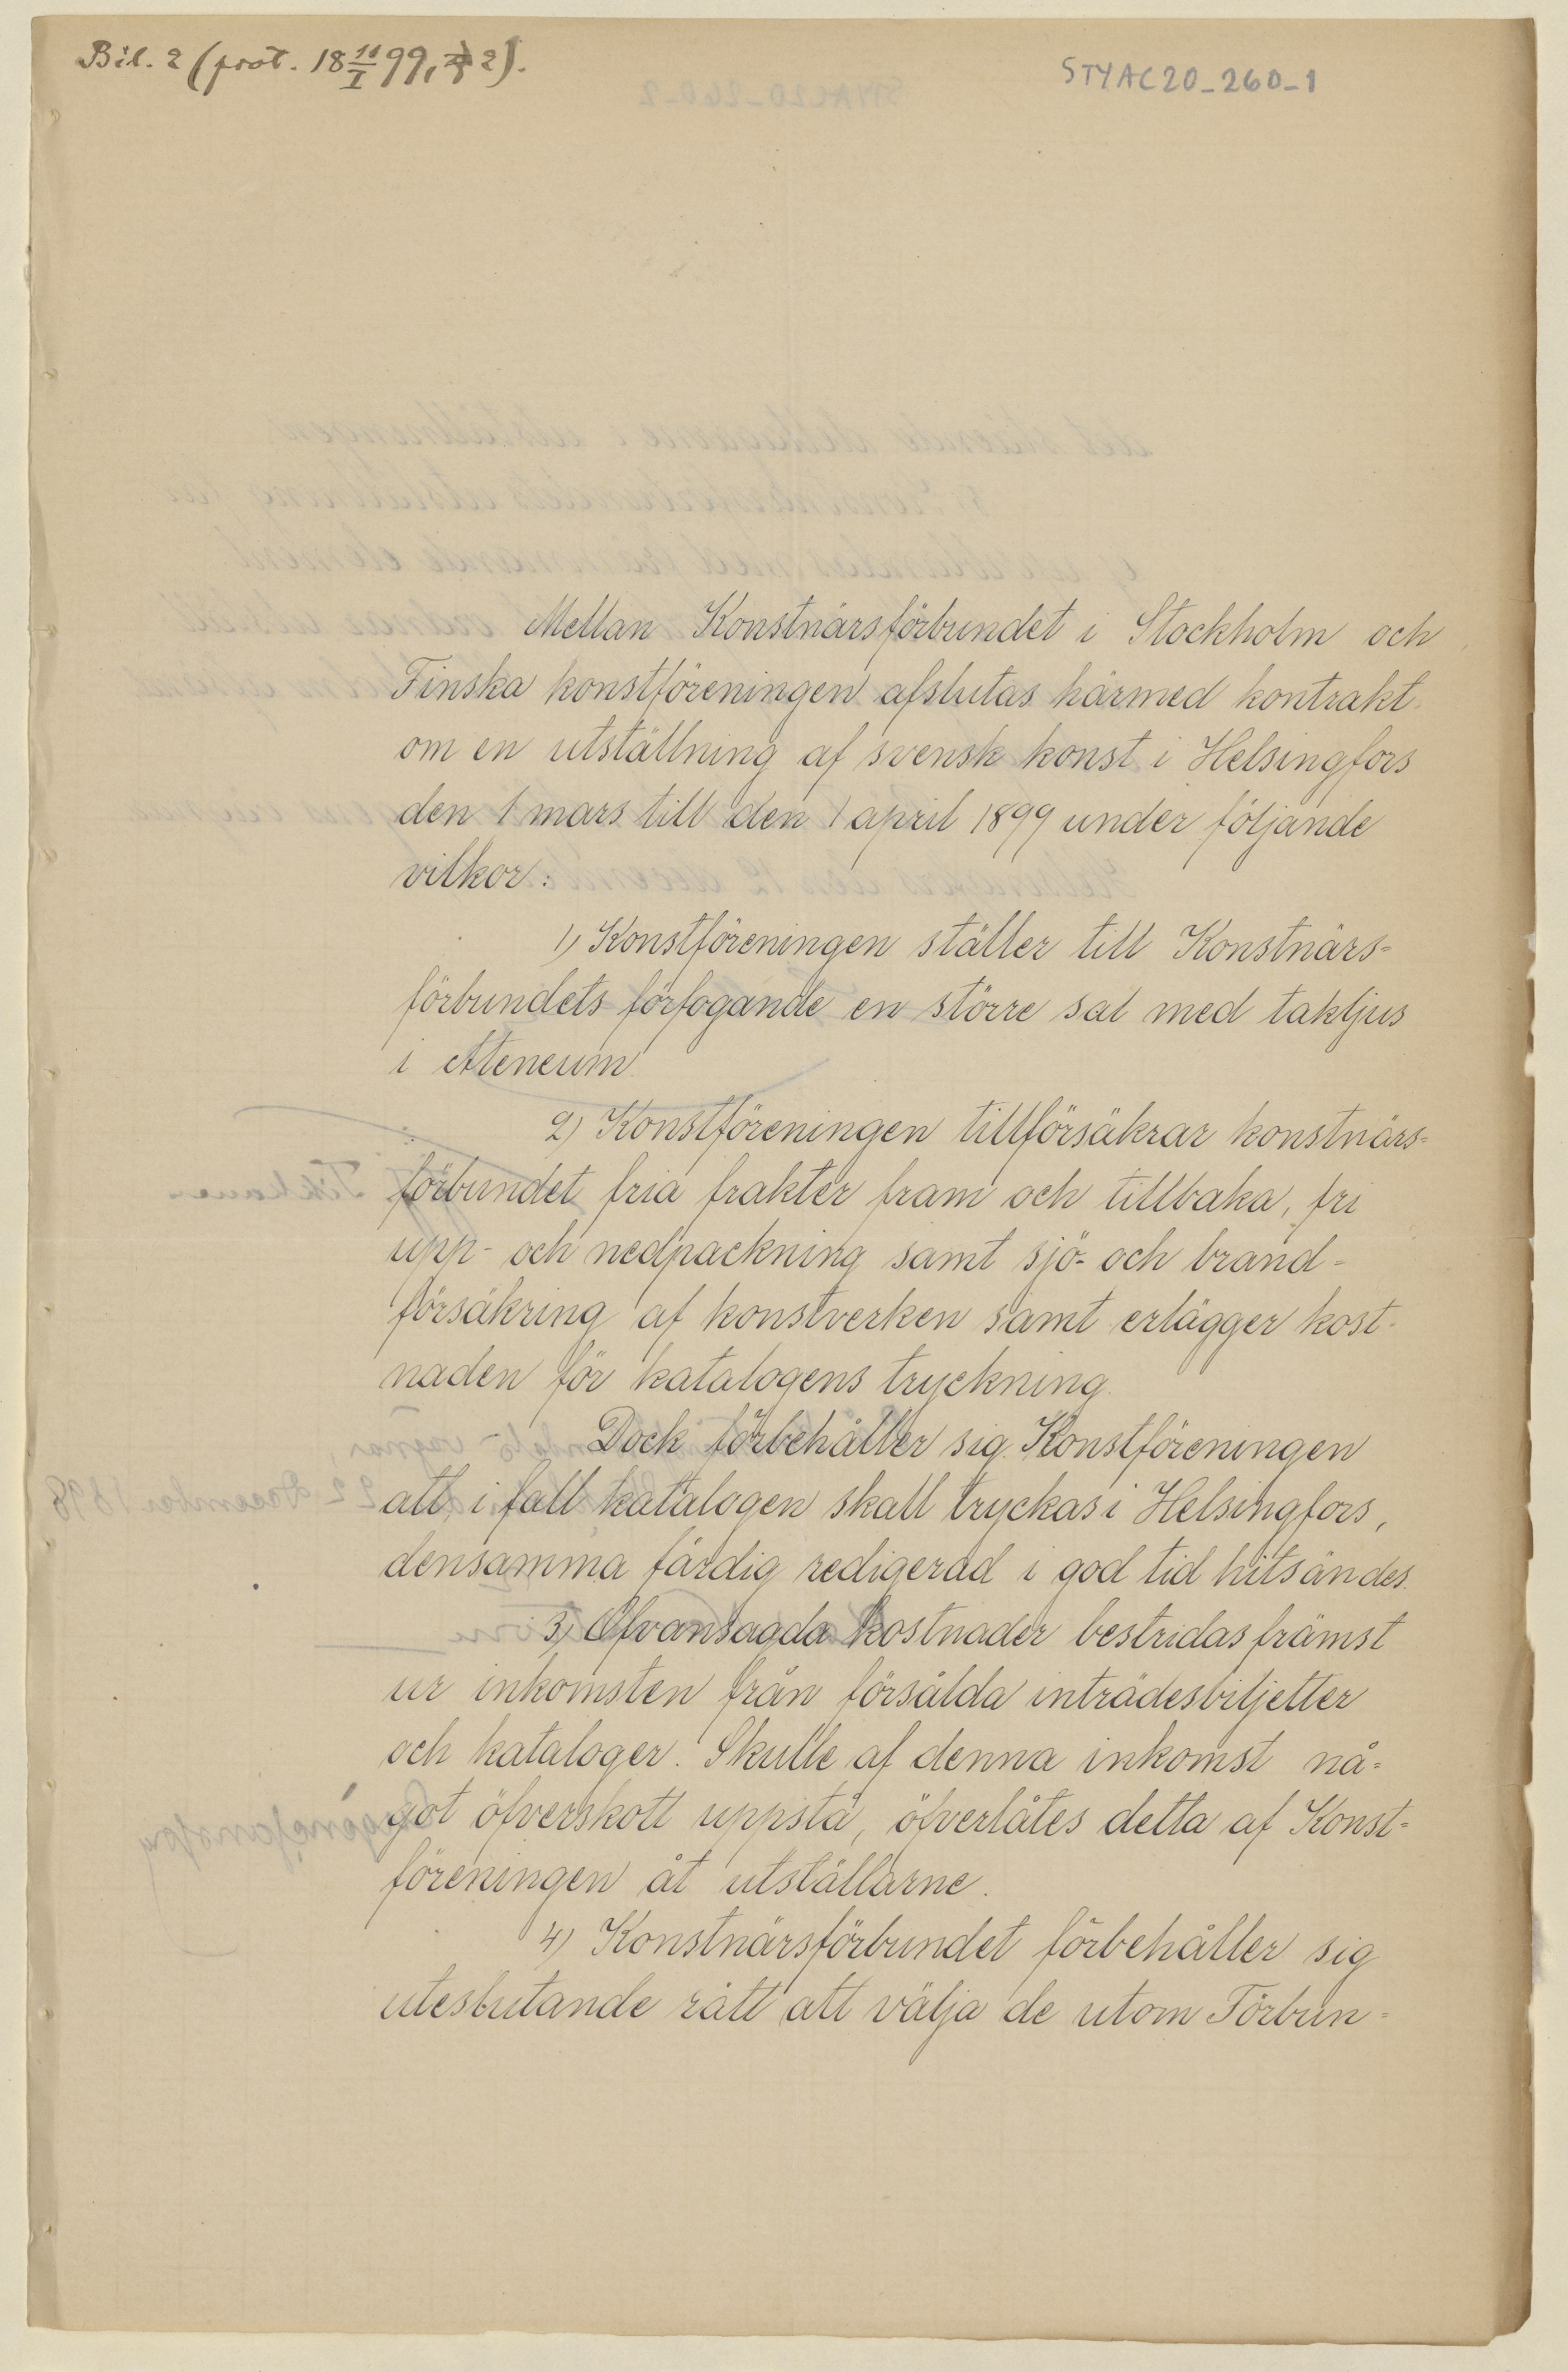 Bil. 2 (prot. 18 11/I 99, § 2).
STYAC20_260_1
Mellan Konstnärsförbundet i Stockholm och
Finska konstföreningen afslutas härmed kontrakt
om en utställning af svensk konst i Helsingfors
den 1 mars till den 1 april 1899 under följande
vilkor:
1) Konstföreningen ställer till Konstnärs-
förbundets förfogande en större sal med takljus
i Ateneum.
2) Konstföreningen tillförsäkrar konstnärs-
förbundet fria frakter fram och tillbaka, fri
upp- och nedpackning samt sjö- och brand-
försäkring af konstverken samt erlägger kost-
naden för katalogens tryckning.
Dock förbehåller sig Konstföreningen
att, i fall katalogen skall tryckas i Helsingfors,
densamma färdig redigerad i god tid hitsändes.
3) Ofvansagda kostnader bestridas främst
ur inkomsten från försålda inträdesbiljetter
och kataloger. Skulle af denna inkomst nå-
got öfverskott uppstå, öfverlåtes detta af Konst-
föreningen åt utställarne.
4) Konstnärsförbundet förbehåller sig
uteslutande rätt att välja de utom Förbun-